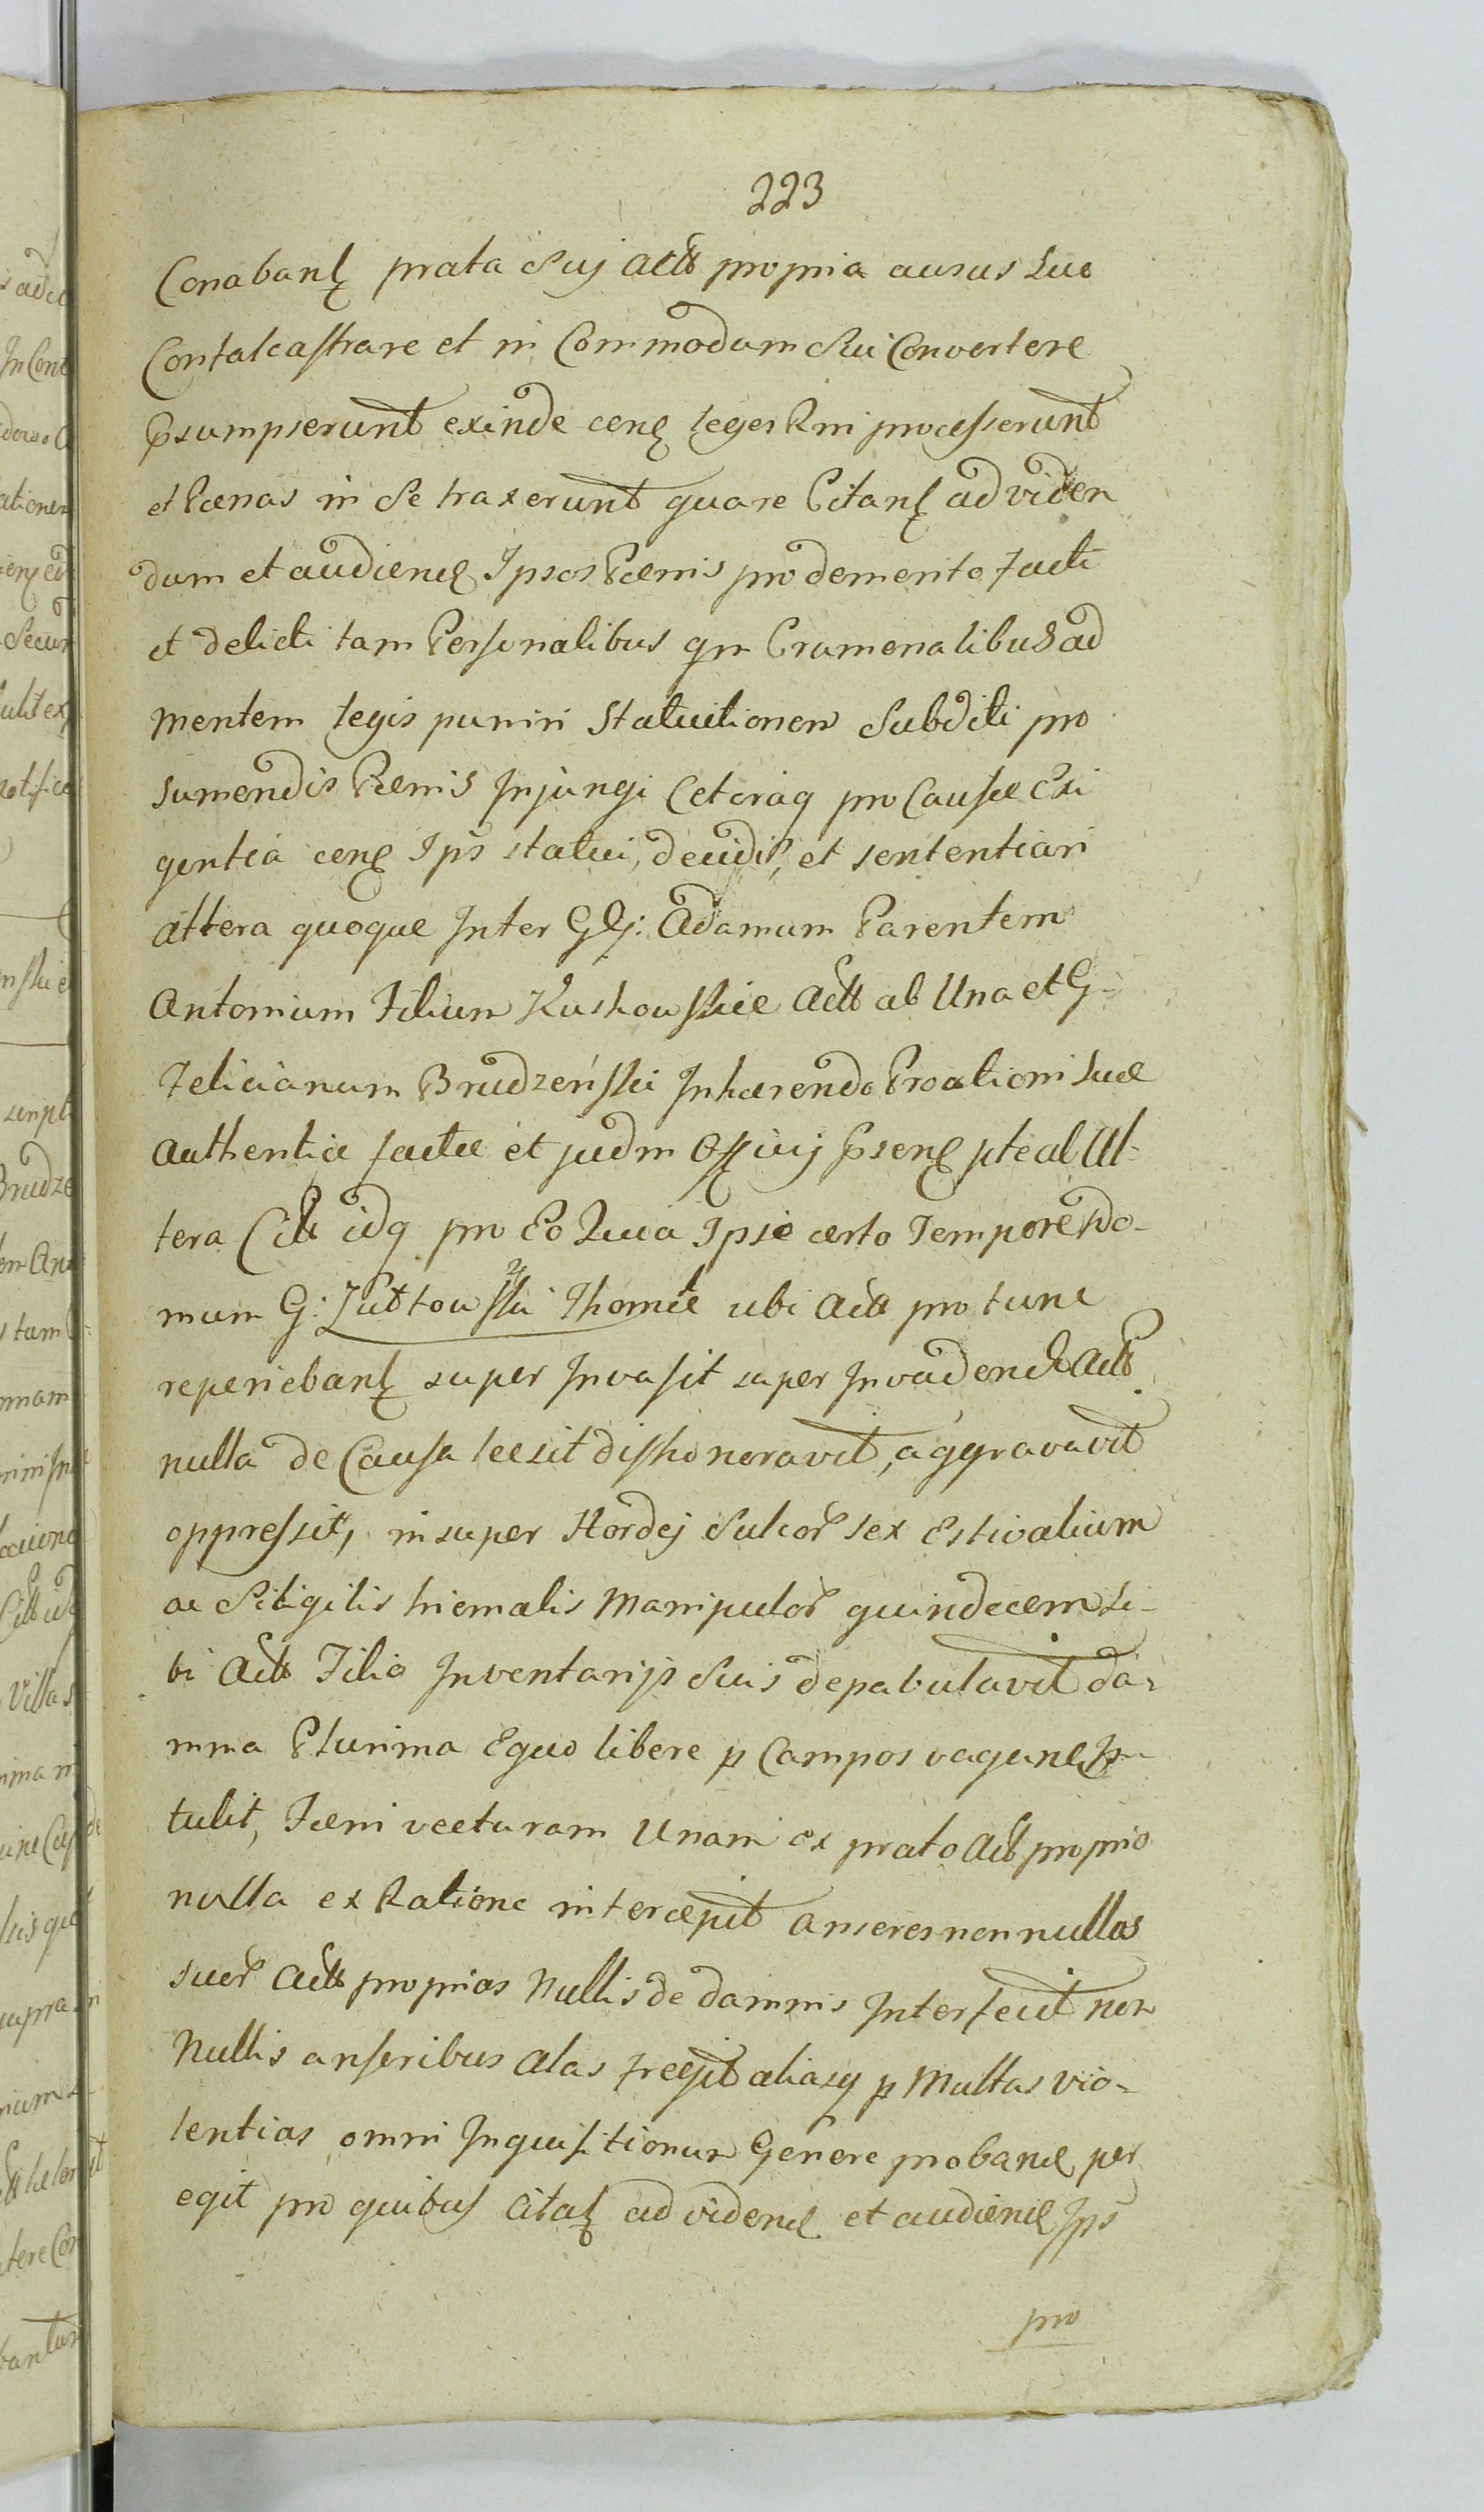 223
Conabantʒ prata Suj Actt propria ausus suo
Confalcastrare et in Commodum Sui Convertere
Psumpserunt exinde cenʒ leges Rni processerunt
et Pœnas in Se traxerunt quare Citantʒ ad viden
dum et audienʒ Ipsos Pœnis pro demerito facti
et delicti tam Personalibus qm Crumenalibus ad
mentem legis puniri Statuitionem Subditi pro
sumendis Pœnis Injungi Ceteraq pro Causæ Exi
gentia cenʒ Ips statui, decidi, et sententiari
altera quoque Inter GG: Adamum Parentem
Antonium Filium Kuskowskie Actt ab Una et G
Felicianum Brudzeński Inhærendo Proationi suæ
authentice factæ et judm Officij Psenʒ pte ab Al-
tera Citt idq pro Eo Quia Ipse certo Tempore Do-
mum G: Lutkowski Thomæ ubi Actt pro tunc
reperiebantʒ super Invasit super Invadendo Actt
nulla de Causa læsit dishonoravit, aggravavit
oppressit, insuper Hordej Sulcor sex Estivalium
ac Siligilis hiemalis Manipulor quindecem Si-
bi Actt Filio Inventarijs Suis depabulavit da-
mna Plurima Equo libere p Campos vagune In-
tulit, Fœni vecturam Unam ex prato Actt proprio
nulla ex Ratione intercepit anseres nonnullos
suor Actt proprios Nullis de damnis Interfecit non
Nullis anseribus alas fregit aliasq p Multas vio-
lentias omni Inquisitionum Genere probanʒ per
egit pro quibus Citatʒ ad videnʒ et audienʒ Ips
pro